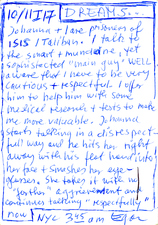 10/11/17 DREAMS...
Johanna + I are prisoners of
ISIS / Taliban. I talk to
the smart + mundane yet
sophisticated "main guy" WELL
aware that I have to be very
cautious + respectful. I offer
him to help him with some
medical research + tests to make
me more valuable. Johanna
starts talking in a disrespect-
ful way and he hits her right
away with his feet hard into
her face + smashes her eye-
glasses. She takes it with no
further aggrievement and
continues talking "respectfully"
now! NYC 3:45 am